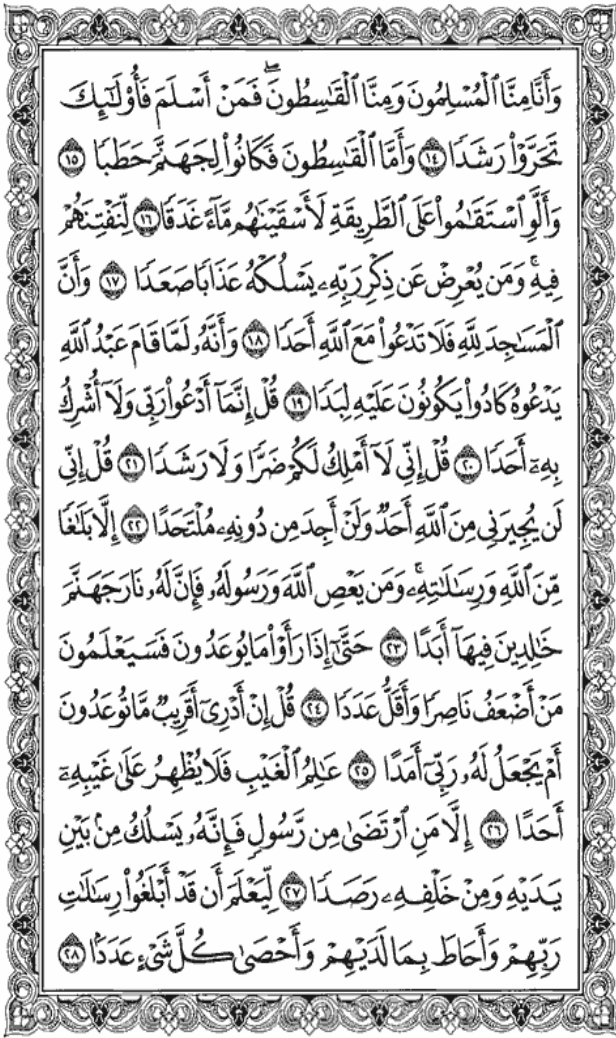 وَأَنَّا مِنَّا ٱلْمُسْلِمُونَ وَمِنَّا ٱلْقَٰسِطُونَۖ فَمَنْ أَسْلَمَ فَأُو۟لَٰٓئِكَ
تَحَرَّوْا۟ رَشَدًا ١٤ وَأَمَّا ٱلْقَٰسِطُونَ فَكَانُوا۟ لِجَهَنَّمَ حَطَبًا ١٥
وَأَلَّوِ ٱسْتَقَٰمُوا۟ عَلَى ٱلطَّرِيقَةِ لَأَسْقَيْنَٰهُم مَّآءً غَدَقًا ١٦ لِّنَفْتِنَهُمْ
فِيهِۚ وَمَن يُعْرِضْ عَن ذِكْرِ رَبِّهِۦ يَسْلُكْهُ عَذَابًا صَعَدًا ١٧ وَأَنَّ
ٱلْمَسَٰجِدَ لِلَّهِ فَلَا تَدْعُوا۟ مَعَ ٱللَّهِ أَحَدًا ١٨ وَأَنَّهُۥ لَمَّا قَامَ عَبْدُ ٱللَّهِ
يَدْعُوهُ كَادُوا۟ يَكُونُونَ عَلَيْهِ لِبَدًا ١٩ قُلْ إِنَّمَآ أَدْعُوا۟ رَبِّى وَلَآ أُشْرِكُ
بِهِۦٓ أَحَدًا ٢٠ قُلْ إِنِّى لَآ أَمْلِكُ لَكُمْ ضَرًّا وَلَا رَشَدًا ٢١ قُلْ إِنِّى
لَن يُجِيرَنِى مِنَ ٱللَّهِ أَحَدٌ وَلَنْ أَجِدَ مِن دُونِهِۦ مُلْتَحَدًا ٢٢ إِلَّا بَلَٰغًا
مِّنَ ٱللَّهِ وَرِسَٰلَٰتِهِۦۚ وَمَن يَعْصِ ٱللَّهَ وَرَسُولَهُۥ فَإِنَّ لَهُۥ نَارَ جَهَنَّمَ
خَٰلِدِينَ فِيهَآ أَبَدًا ٢٣ حَتَّىٰٓ إِذَا رَأَوْا۟ مَا يُوعَدُونَ فَسَيَعْلَمُونَ
مَنْ أَضْعَفُ نَاصِرًا وَأَقَلُّ عَدَدًا ٢٤ قُلْ إِنْ أَدْرِىٓ أَقَرِيبٌ مَّا تُوعَدُونَ
أَمْ يَجْعَلُ لَهُۥ رَبِّىٓ أَمَدًا ٢٥ عَٰلِمُ ٱلْغَيْبِ فَلَا يُظْهِرُ عَلَىٰ غَيْبِهِۦٓ
أَحَدًا ٢٦ إِلَّا مَنِ ٱرْتَضَىٰ مِن رَّسُولٍ فَإِنَّهُۥ يَسْلُكُ مِنۢ بَيْنِ
يَدَيْهِ وَمِنْ خَلْفِهِۦ رَصَدًا ٢٧ لِّيَعْلَمَ أَن قَدْ أَبْلَغُوا۟ رِسَٰلَٰتِ
رَبِّهِمْ وَأَحَاطَ بِمَا لَدَيْهِمْ وَأَحْصَىٰ كُلَّ شَىْءٍ عَدَدًۢا ٢٨